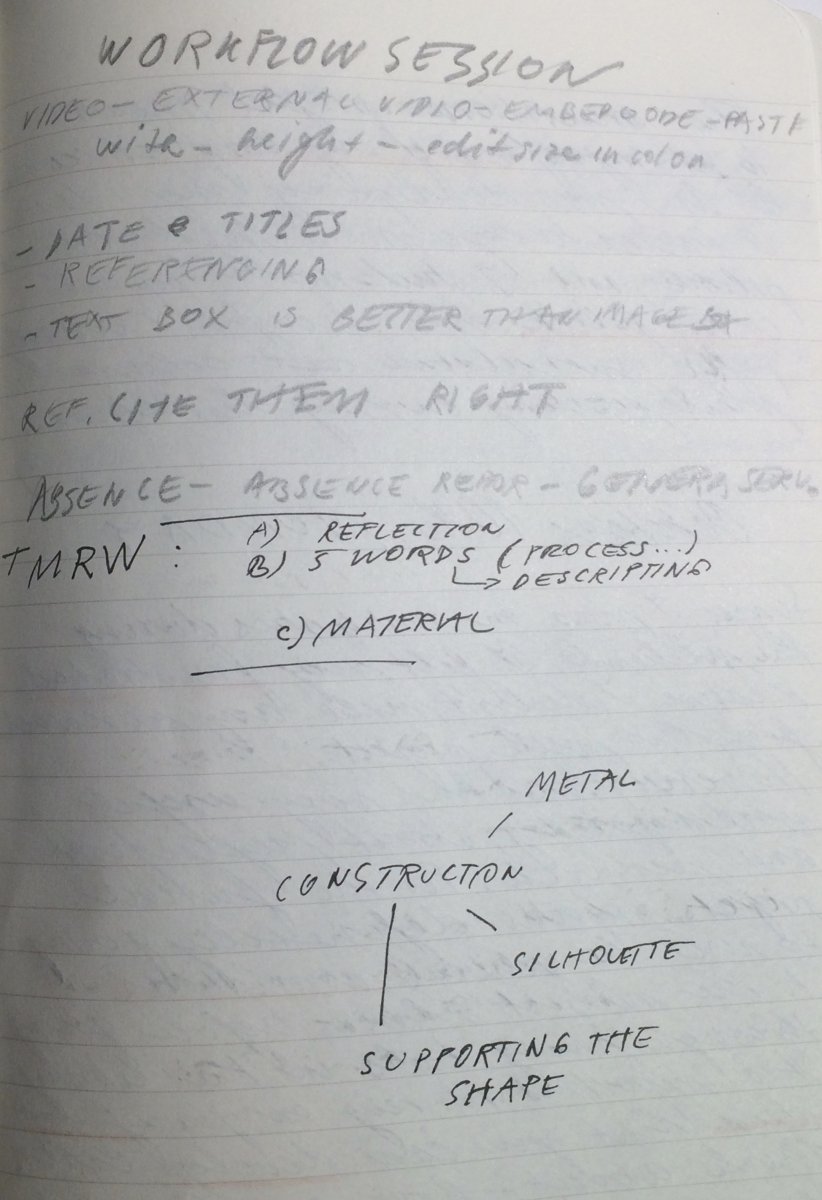 WORKFLOW SESSION
VIDEO - EXTERNAL VIDIO - EMBEDCODE - PASTE
with - height - edit size in colon.
- DATE e TITLES
- REFERENCING
- TEXT BOX IS BETTER THAN IMAGE BOX
REF. CITE THEM RIGHT
ABSENCE - ABSENCE REPOR - GENERA SERV.
TMRW : A) REFLECTION
B) 5 WORDS (PROCESS...)
DESCRIPTING
C) MATERIAL
METAL
CONSTRUCTION
SILHOUETTE
SUPPORTING THE
SHAPE